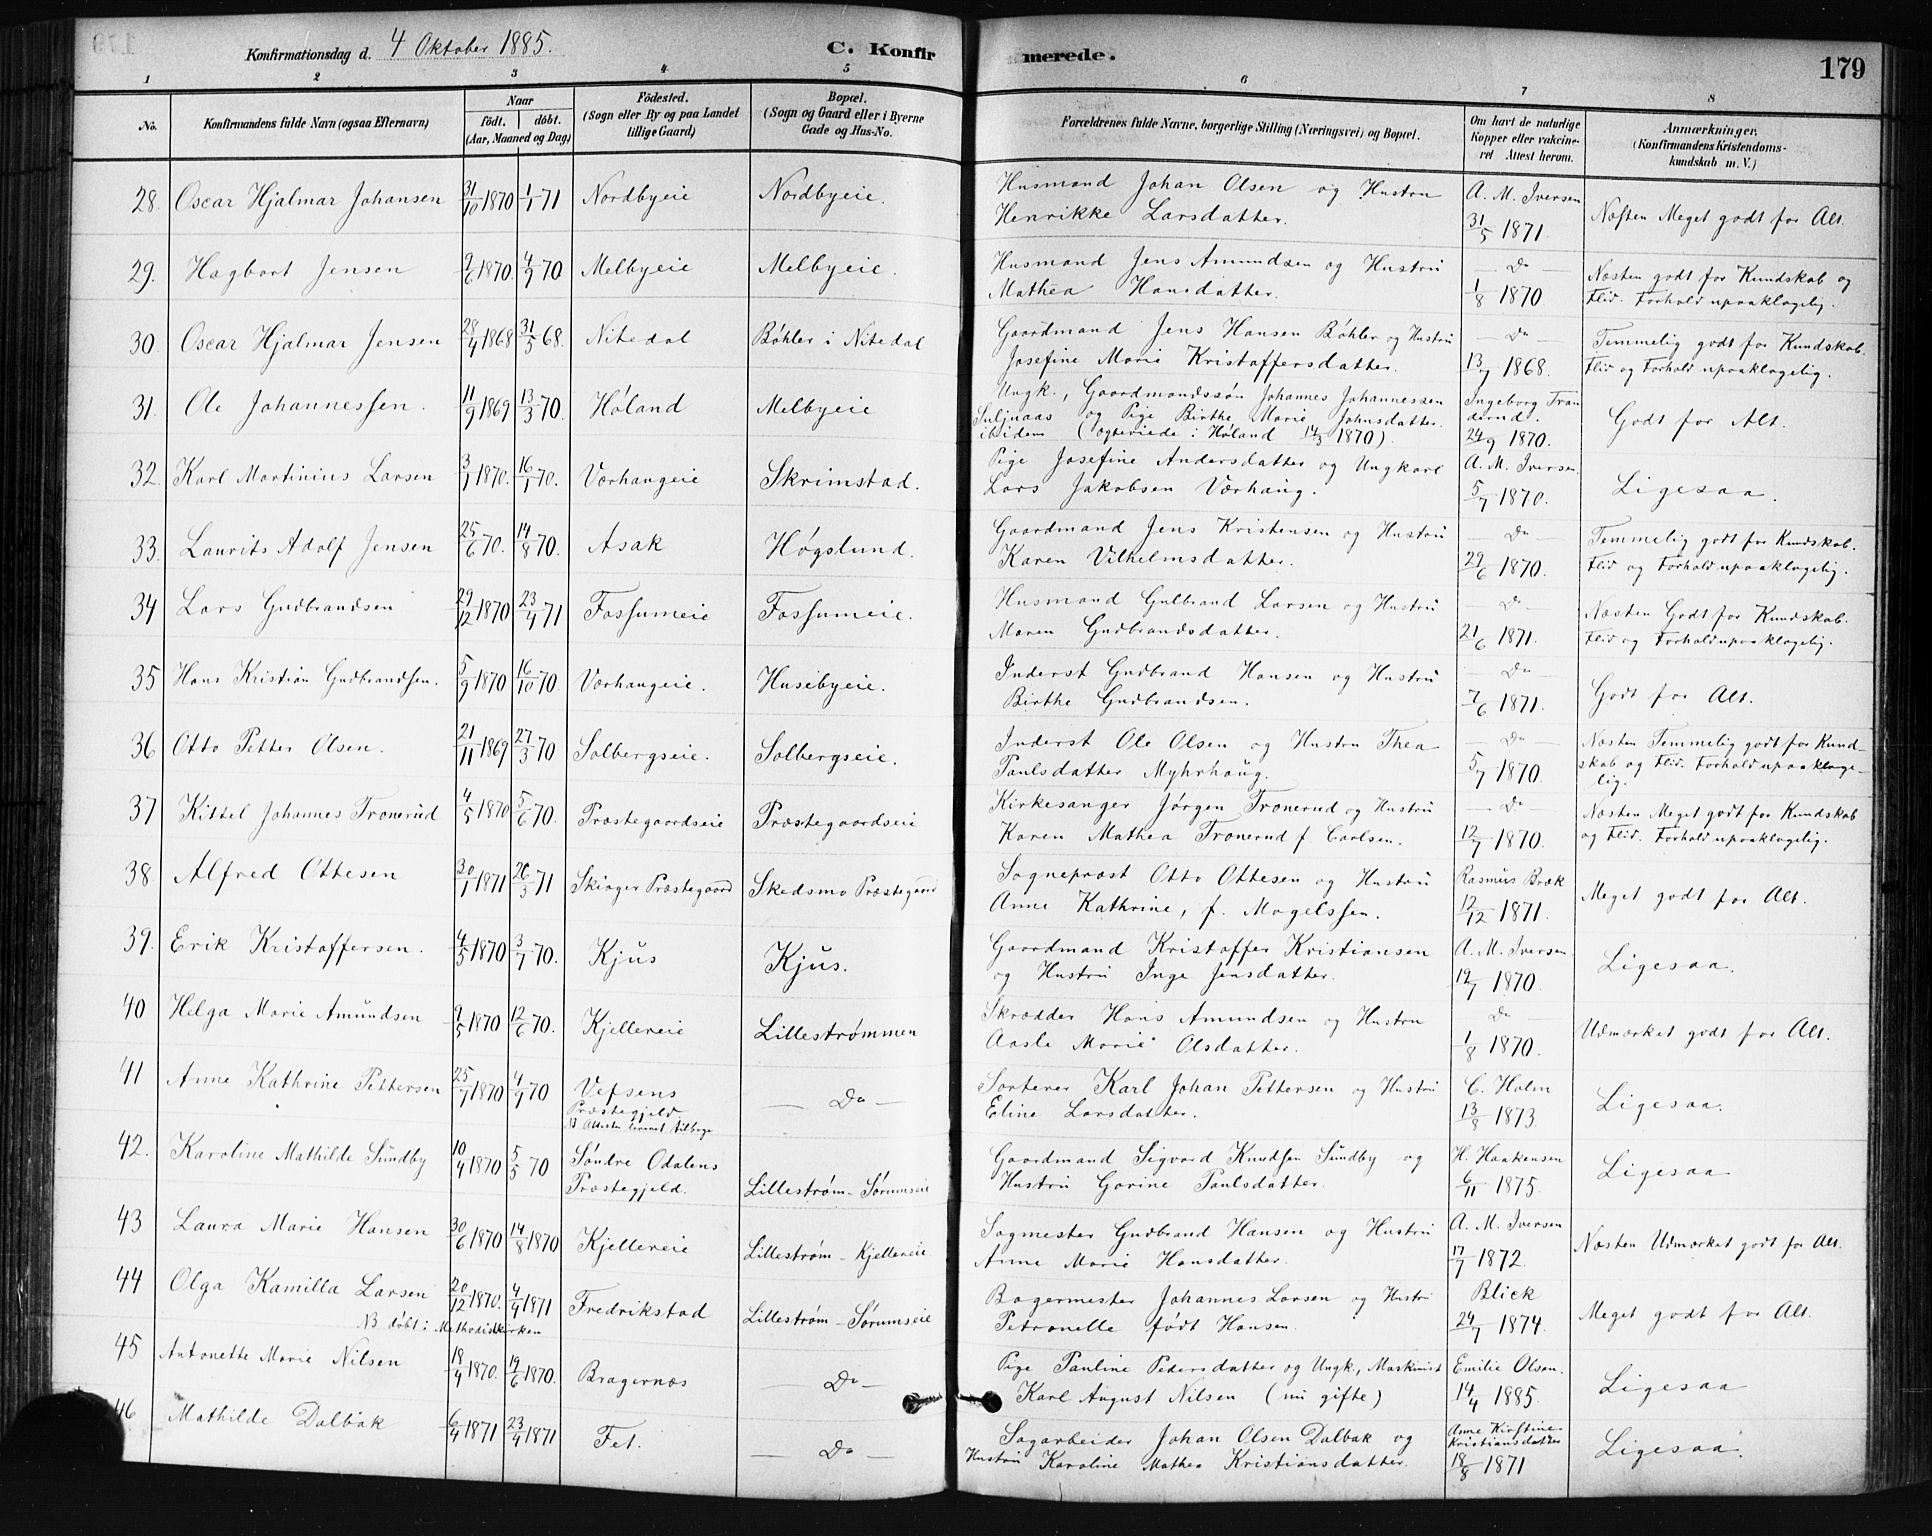 Konfirmationsdag d. 4 Oktober 1885.
C. Konfirmerede.
179
1 2 3 4 5 6 7 8
No.
Konfirmandens fulde Navn (ogsaa Efternavn)
Naar
født. døbt.
(Aar, Maaned og Dag)
Födested.
(Sogn eller By og paa Landet
tillige Gaard)
Bopæl.
(Sogn og Gaard eller i Byerne
Gade og Hus-No.
Forældrenes fulde Navne, borgerlige Stilling (Næringsvei) og Bopæl.
Om havt de naturlige
Kopper eller vakcine-
ret Attest herom.
Anmærkninger.
(Konfirmandens Kristendoms-
kundskab m. V.)
28. Oscar Hjalmar Johansen 31/10 1870 1/1 71 Nordbyeie Nordbyeie. Husmand Johan Olsen og Hustru A. M. Iversen
Henrikke Larsdatter. 31/5 1871. Næsten Meget godt for Alt.
29. Hagbart Jensen 9/6 1870. 4/9 70 Melbyeie Melbyeie. Husmand Jens Amundsen og Hustru — Do — Næsten godt for Kundskab og
Mathea Hansdatter. 1/8 1870. Flid. Forhold upaaklagelig.
30. Oscar Hjalmar Jensen 28/4 1868 31/5 68. Nitedal Bøhler i Nitedal Gaardmand Jens Hansen Bøhler og Hustru — Do — Temmelig godt for Kundskab.
Josefine Marie Kristoffersdatter. 13/7 1868. Flid og Forhold upaaklagelig.
31. Ole Johannessen. 11/9 1869 13/3 70. Høland Melbyeie Ungk., Gaardmandssøn Johannes Johannessen Ingeborg Tran
Suljnaas og Pige Birthe Marie Johnsdatter. dernd. Godt for Alt.
ibidem (ægteviede i Høland 14/3 1870). 24/9 1870.
32. Karl Martinius Larsen 3/1 1870. 16/1 70. Værhaugeie Skrimstad. Pige Josefine Andersdatter og Ungkarl A. M. Iversen.
Lars Jakobsen Værhaug. 5/7 1870. Ligesaa.
33. Laurits Adolf Jensen 25/6 70. 14/8 70. Asak Høgslund. Gaardmand Jens Kristensen og Hustru — Do — Temmelig godt for Kundskab.
Karen Vilhelmsdatter. 29/6 1870. Flid og Forhold upaaklagelig.
34 Lars Gudbrandsen 29/12 1870 23/4 71 Fossumeie Fossumeie. Husmand Gulbrand Larsen og Hustru — Do — Næsten Godt for Kundskab.
Maren Gudbrandsdatter. 21/6 1871. Flid og Forhold upaaklagelig.
35 Hans Kristian Gudbrandsen. 5/9 1870 16/10 70. Værhaugeie. Husebyeie. Inderst Gudbrand Hansen og Hustru — Do —
Birthe Gudbrandsen. 7/6 1871. Godt for Alt.
36 Otto Petter Olsen. 21/11 1869 27/3 70 Solbergseie. Solbergseie. Inderst Ole Olsen og Hustru Thea — Do — Næsten Temmelig godt for Kund-
Paulsdatter Myhrhaug. 5/7 1870. skab og Flid. Forhold upaaklage-
lig.
37 Kittel Johannes Tronerud 4/5 1870 5/6 70. Præstegaardseie Præstegaardseie Kirkesanger Jørgen Tronerud og Hustru — Do — Næsten Meget godt for Kundskab
Karen Mathea Tronerud f. Carlsen. 12/7 1870. og Flid. Forhold upaaklagelig.
38. Alfred Ottesen 30/1 1871 26/3 71 Skiager Præstegaard Skedsmo Præstegaard Sogneprost Otto Ottesen og Hustru Rasmus Bræk
Anne Kathrine, f. Magelssen. 12/12 1871. Meget godt for Alt.
39. Erik Kristoffersen. 4/5 1870 3/7 70. Kjus Kjus. Gaardmand Kristoffer Kristiansen A. M. Iversen.
og Hustru Inge Jensdatter. 19/7 1870. Ligesaa.
40 Helga Marie Amundsen 9/5 1870 12/6 70. Kjellereie Lillestrømmen Skrædder Hans Amundsen og Hustru Do
Aasle Marie Olsdatter. 1/8 1870. Udmærket godt for Alt.
41 Anne Kathrine Pettersen 25/7 1870 4/9 70 Vefsens — Do — Sorterer Karl Johan Pettersen og Hustru C. Holm
Præstegjeld Eline Larsdatter. 13/8 1873. Ligesaa.
NB Attesten leveret tilbage
42. Karoline Mathilde Sundby 10/4 1870 5/5 70 Søndre Odalens Gaardmand Sigvard Knudsen Sundby og H. Haakensen
Præstegjeld. Lillestrøm – Sørumseie Hustru Gorine Paulsdatter. 6/11 1875. Ligesaa
43 Laura Marie Hansen 30/6 1870 14/8 1870 Kjellereie Lillestrøm – Kjellereie Sagmester Gudbrand Hansen og Hustru A. M. Iversen
Anne Marie Hansdatter. 17/7 1872. Næsten Udmærket godt for Alt.
44 Olga Kamilla Larsen 20/12 1870. 4/9 1871 Fredrikstad Lillestrøm – Sørumseie Bagermester Johannes Larsen og Hustru Blick
NB døbt i Methodistkirken Petronelle født Hansen. 24/7 1874. Meget godt for Alt.
45 Antonette Marie Nilsen 18/4 1870. 19/6 1870. Bragernæs Do — Pige Pauline Pedersdatter og Ungk., Maskinist Emilie Olsen.
Karl August Nilsen (nu gifte) 14/4 1885. Ligesaa
46 Mathilde Dalbak 6/4 1871 23/4 1871 Fet. — Do — Sagarbeider Johan Olsen Dalbak og Anne Kirstine
Hustru Karoline Mathea Kristiansdatter. Kristiansdatter 18/8 1871 Ligesaa.